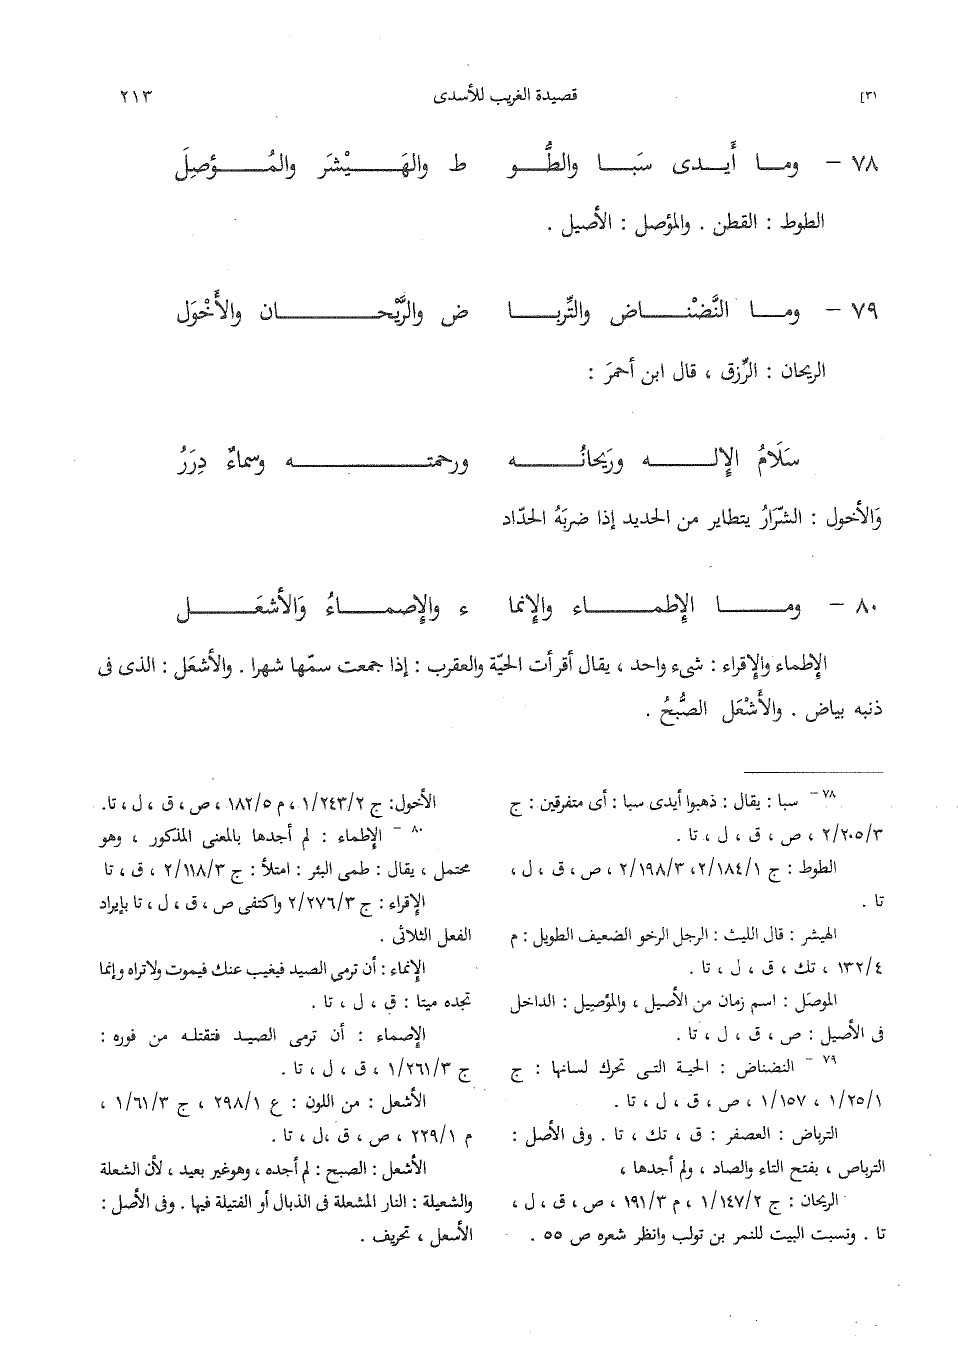 ٣١] قصيدة الغريب للأسدى ٢١٣
٧٨ – وما أَيدى سَبا والطُّو ط والهَيْشَر والمُؤصِلَ
الطوط : القطن . والمؤصل : الأصيل .
٧٩ – وما النَّضْناض والتِّربا ض والرَّيْحان والأَخْوَل
الريحان : الرِّزق ، قال ابن أحمرَ :
سَلَامُ الإِله ورَيحانُه ورحمته وسماءٌ دِرَرُ
وَالأخول : الشّرَارُ يتطاير من الحديد إذا ضربَهُ الحدّاد
٨٠ – وما الإِطماء والإِنما ء والإِصماءُ وَالأشعَل
الإِطماء والإِقراء : شىء واحد ، يقال أقرأت الحيّة والعقرب : إذا جمعت سمّها شهرا . والأشعَل : الذى فى
ذنبه بياض . والأَشْعَل الصُّبحُ .
٧٨ – سبا : يقال : ذهبوا أيدى سبا : أى متفرقين : ج
٢/٢٠٥/٣ ، ص ، ق ، ل ، تا .
الطوط : ج ٢/١٨٤/١، ٢/١٩٨/٣ ، ص ، ق ، ل ،
تا .
الهيشر : قال الليث : الرجل الرخو الضعيف الطويل : م
١٣٢/٤ ، تك ، ق ، ل ، تا .
الموصَل : اسم زمان من الأصيل ، والمؤصيل : الداخل
فى الأصيل : ص ، ق ، ل ، تا .
٧٩ – النضناض : الحية التى تحرك لسانها : ج
١/٢٥/١ ، ١/١٥٧ ، ص ، ق ، ل ، تا .
الترباض : العصفر : ق ، تك ، تا . وفى الأصل :
الترباص ، بفتح التاء والصاد ، ولم أجدها ،
الريحان : ج ١/١٤٧/٢ ، م ١٩١/٣ ، ص ، ق ، ل ،
تا . ونسبت البيت للنمر بن تولب وانظر شعره ص ٥٥ .
الأخول: ج ١/٢٤٣/٢ ، م ١٨٢/٥ ، ص ، ق ، ل ، تا.
٨٠ – الإطماء : لم أجدها بالمعنى المذكور ، وهو
محتمل ، يقال : طمى البئر : امتلأ : ج ٢/١١٨/٣ ، ق ، تا
الإقراء : ج ٢/٢٧٦/٣ واكتفى ص ، ق ، ل ، تا بإيراد
الفعل الثلاثى .
الإنماء : أن ترمي الصيد فيغيب عنك فيموت ولاتراه وإنما
تجده ميتا : ق ، ل ، تا .
الإصماء : أن ترمى الصيد فتقتله من فوره :
ج ١/٢٦١/٣ ، ق ، ل ، تا .
الأشعل : من اللون : ع ٢٩٨/١ ، ج ١/٦١/٣ ،
م ٢٢٩/١ ، ص ، ق ،ل ، تا .
الأشعل : الصبح : لم أجده ، وهوغير بعيد ، لأن الشعلة
والشعيلة : النار المشعلة فى الذبال أو الفتيلة فيها . وفى الأصل :
الأسعل ، تحريف .